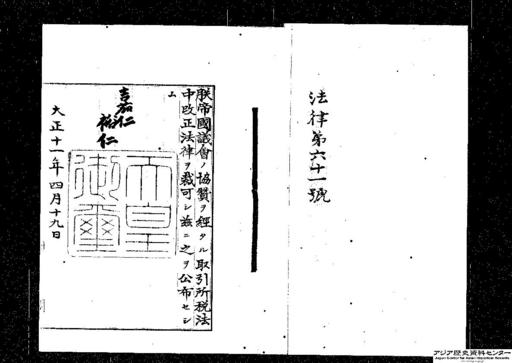 法律第六十一號
朕帝國議會ノ協贊ヲ經タル取引所税法
中改正法律ヲ裁可シ茲ニ之ヲ公布セシ
ム
嘉仁
裕仁
天皇
御璽
大正十一年四月十九日
アジア歴史資料センター
Japan Center for Asian Historical Records